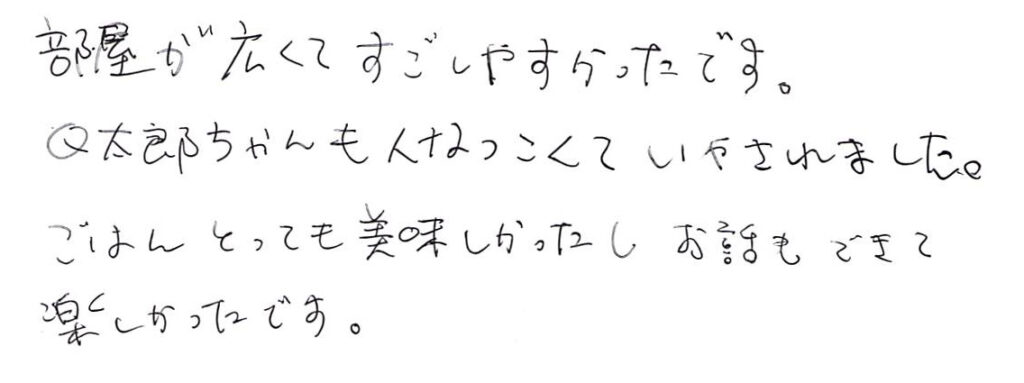 部屋が広くてすごしやすかったです。
Q太郎ちゃんも人なつこくていやされました。
ごはんとっても美味しかったしお話もできて
楽しかったです。